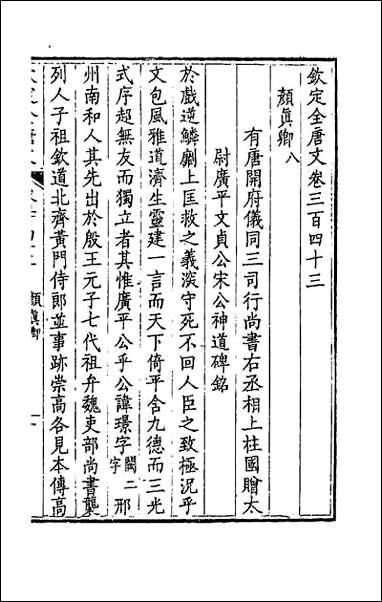 欽定全唐文卷三百四十三
顏真卿八
有唐開府儀同三司行尚書右丞相上柱國贈太
尉廣平文貞公宋公神道碑銘
於戲逆鱗劘上匡救之義深守死不回人臣之致極況乎
文包風雅道濟生靈建一言而天下倚平含九德而三光
式序超無友而獨立者其惟廣平公乎公諱璟字闕二字邢
州南和人其先出於殷王元子七代祖弁魏吏部尚書襲
列人子祖欽道北齊黃門侍郎並事跡崇高各見本傳高
顏真卿